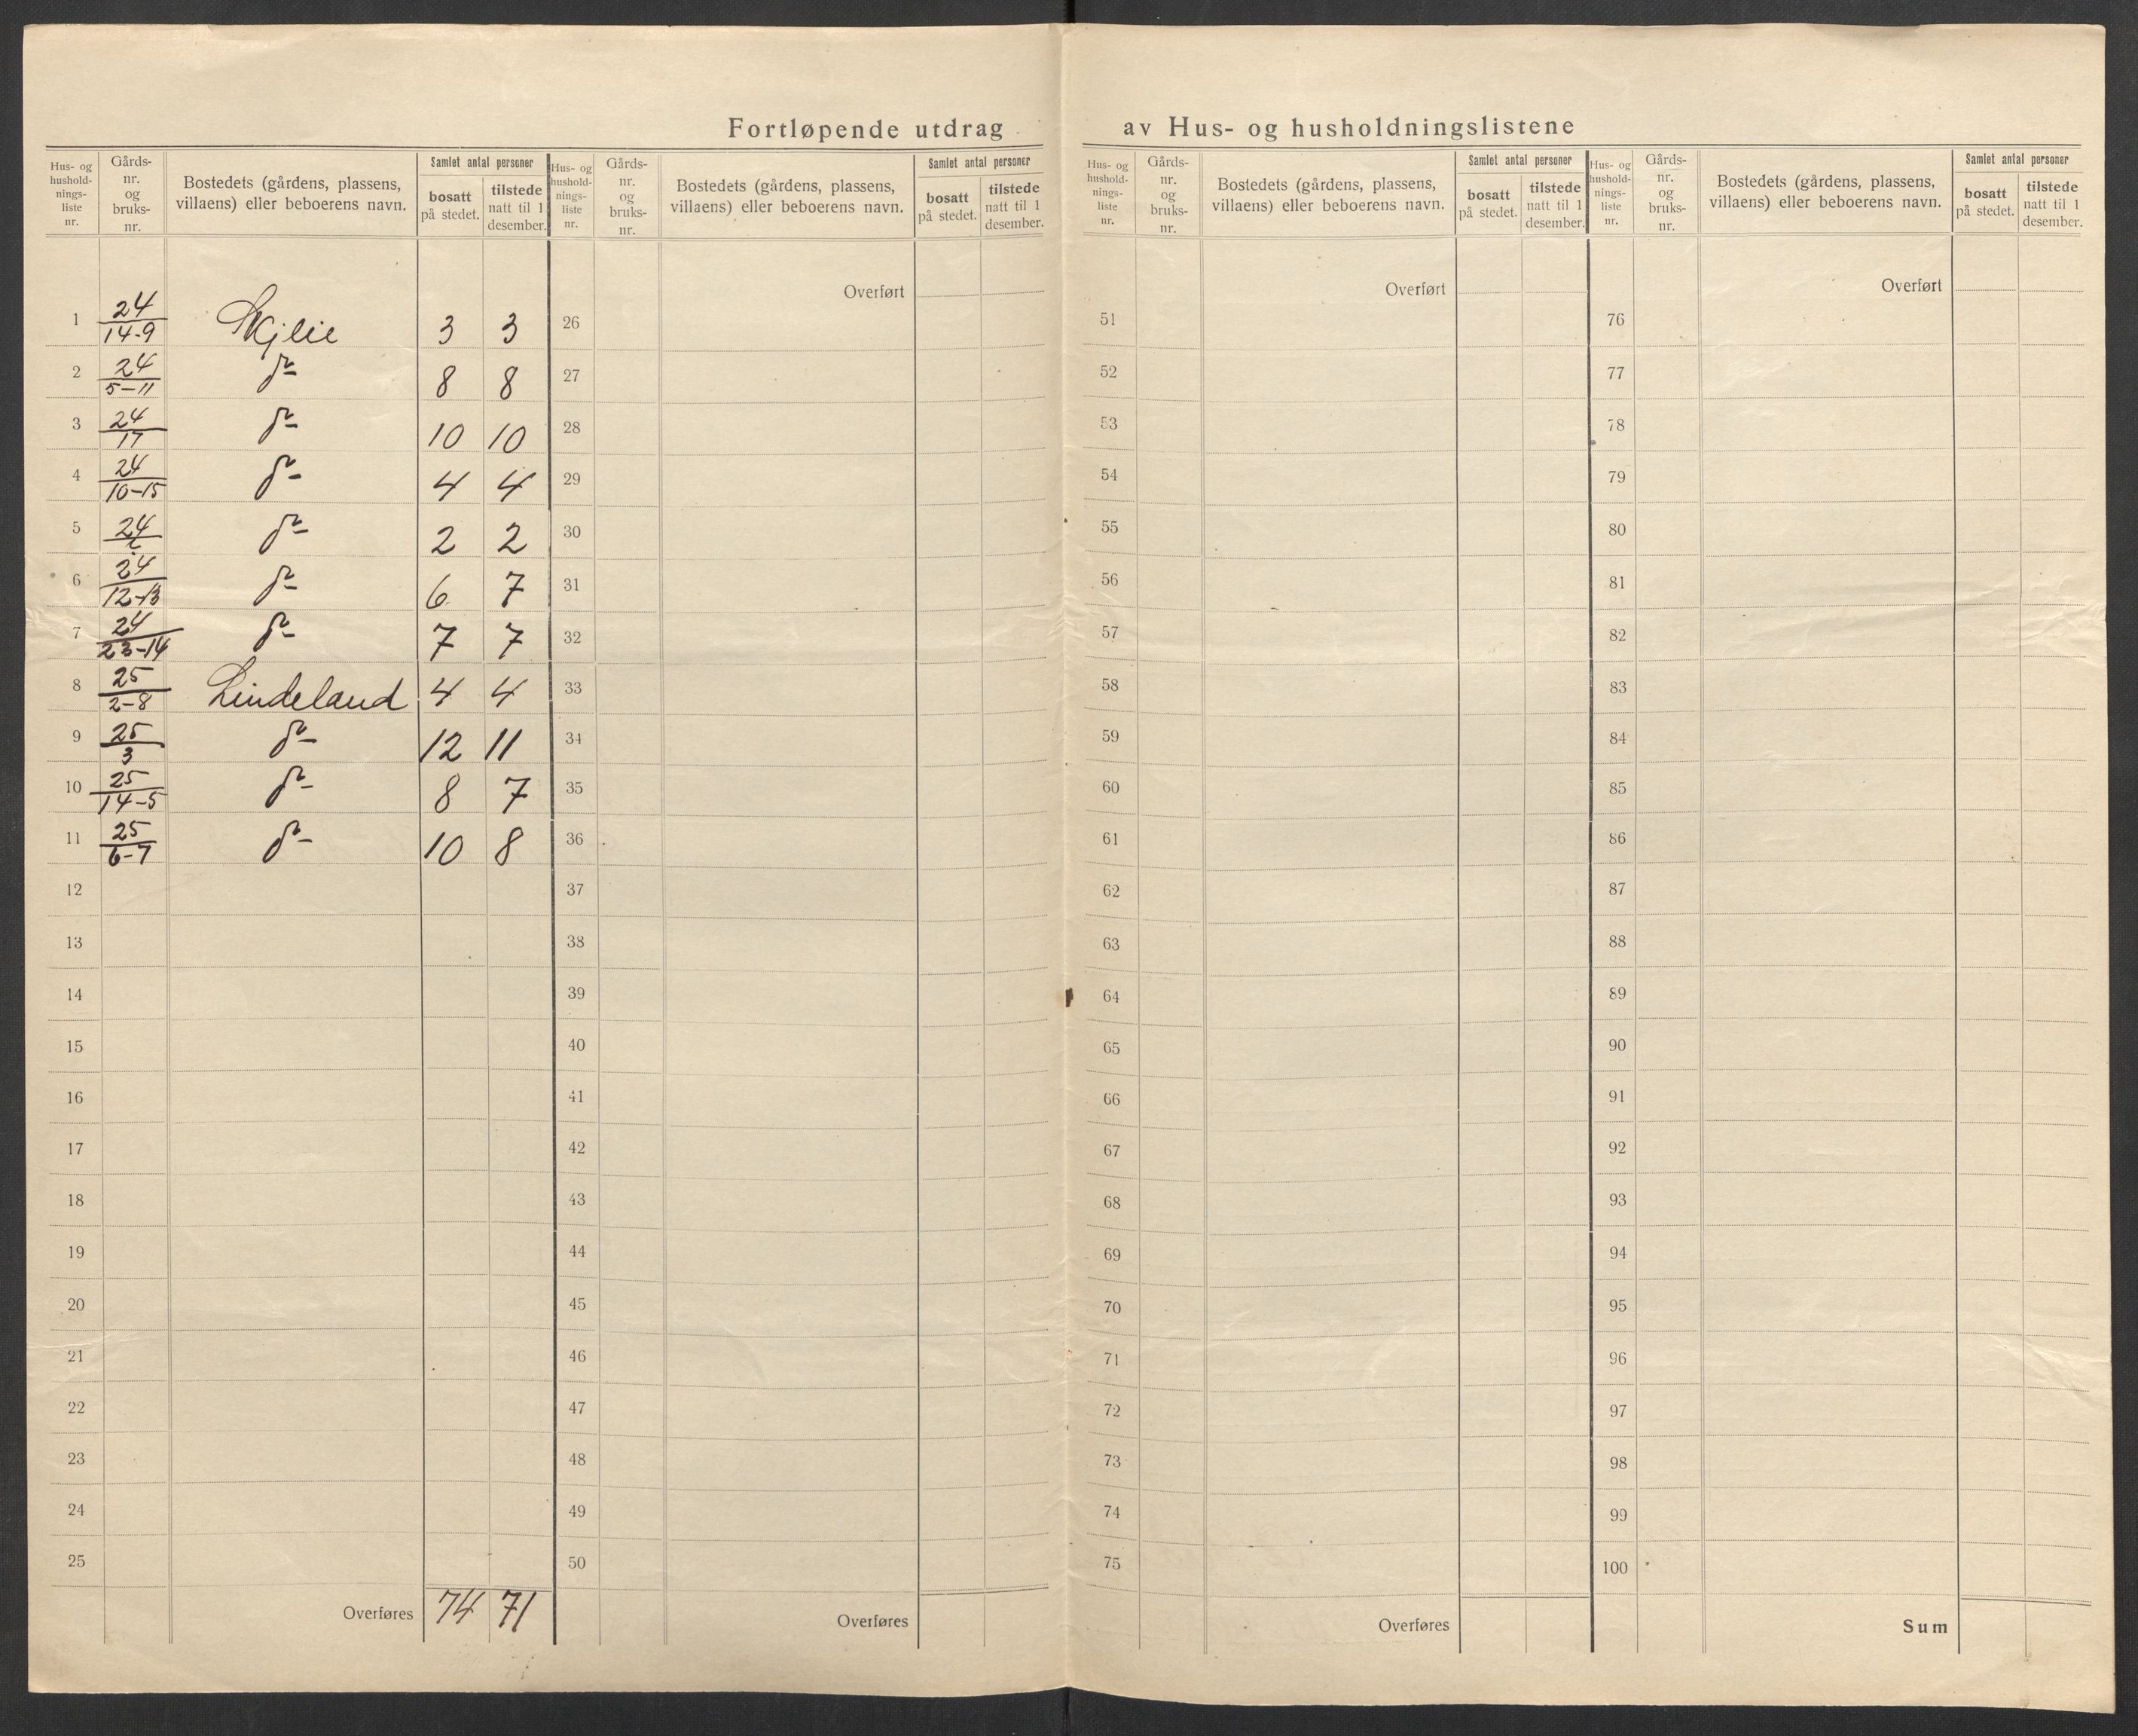 Fortløpende utdrag av Hus- og husholdningslistene
Hus- og hushold-nings-liste nr. Gårds-nr. og bruks-nr. Bostedets (gårdens, plassens, villaens) eller beboerens navn. Samlet antal personer bosatt på stedet. tilstede natt til 1 desember.
1 24/14-9 Skjlie 3 3
2 24/5-11 do 8 8
3 24/17 do 10 10
4 24/10-15 do 4 4
5 24/ do 2 2
6 24/12-13 do 6 7
7 24/23-14 do 7 7
8 25/2-8 Lindeland 4 4
9 25/3 do 12 11
10 25/14-5 do 8 7
11 25/6-7 do 10 8
12
13
14
15
16
17
18
19
20
21
22
23
24
25
Overføres 74 71
Hus- og hushold-nings-liste nr. Gårds-nr. og bruks-nr. Bostedets (gårdens, plassens, villaens) eller beboerens navn. Samlet antal personer bosatt på stedet. tilstede natt til 1 desember.
Overført
26
27
28
29
30
31
32
33
34
35
36
37
38
39
40
41
42
43
44
45
46
47
48
49
50
Overføres
Hus- og hushold-nings-liste nr. Gårds-nr. og bruks-nr. Bostedets (gårdens, plassens, villaens) eller beboerens navn. Samlet antal personer bosatt på stedet. tilstede natt til 1 desember.
Overført
51
52
53
54
55
56
57
58
59
60
61
62
63
64
65
66
67
68
69
70
71
72
73
74
75
Overføres
Hus- og hushold-nings-liste nr. Gårds-nr. og bruks-nr. Bostedets (gårdens, plassens, villaens) eller beboerens navn. Samlet antal personer bosatt på stedet. tilstede natt til 1 desember.
Overført
76
77
78
79
80
81
82
83
84
85
86
87
88
89
90
91
92
93
94
95
96
97
98
99
100
Sum